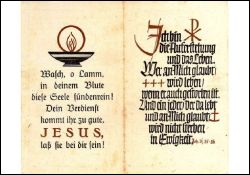 Wasch, o Lamm,
in deinem Blute
diese Seele sündenrein!
Dein Verdienst
kommt ihr zu gute,
JESUS,
laß sie bei dir sein!
Ich bin
die Auferstehung
und das Leben.
Wer an Mich glaubt
+++ wird leben,
wenn er auch gestorben ist.
Und ein jeder der da lebt
und an Mich glaubt
wird nicht sterben
in Ewigkeit.
Joh. 11, 25-26